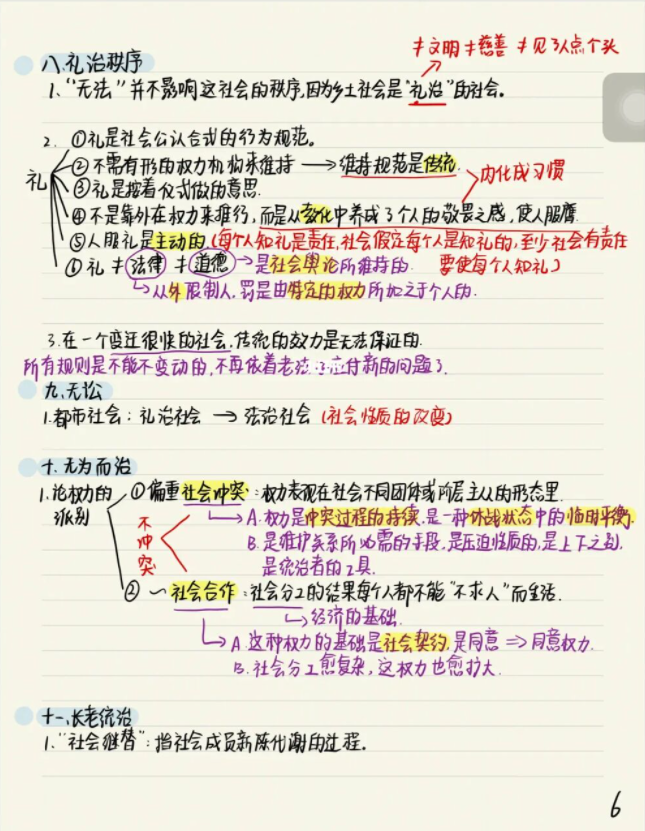 ≠文明 ≠慈善 ≠见了人点个头
八.礼治秩序
1."无法"并不影响这社会的秩序,因为乡土社会是"礼治"的社会。
2. ①礼是社会公认合式的行为规范。
礼
②不需有形的权力机构来维持 → 维持规范是传统.
内化成习惯
③礼是按着仪式做的意思.
④不是靠外在权力来推行,而是从教化中养成了个人的敬畏之感,使人服膺
⑤人服礼是主动的(每个人知礼是责任,社会假定每个人是知礼的,至少社会有责任要使每个人知礼)
⑥礼≠法律 ≠道德 → 是社会舆论所维持的.
↳从外限制人,罚是由特定的权力所加之于个人的.
3.在一个变迁很快的社会,传统的效力是无法保证的.
所有规则是不能不变动的,不再依着老法 应付新的问题了.
九.无讼
1.都市社会:礼治社会 → 法治社会(社会性质的改变)
十.无为而治
1.论权力的派别
①偏重社会冲突:权力表现在社会不同团体或阶层主从的形态里.
↳A.权力是冲突过程的持续,是一种休战状态中的临时平衡.
不冲突
B.是维护关系所必需的手段,是压迫性质的,是上下之别.
是统治者的工具.
② ~ 社会合作:社会分工的结果每个人都不能"不求人"而生活.
↳经济的基础.
↳A.这种权力的基础是社会契约,是同意 ⇒ 同意权力.
B.社会分工愈复杂,这权力也愈扩大.
十一.长老统治
1."社会继替":指社会成员新陈代谢的过程。
6